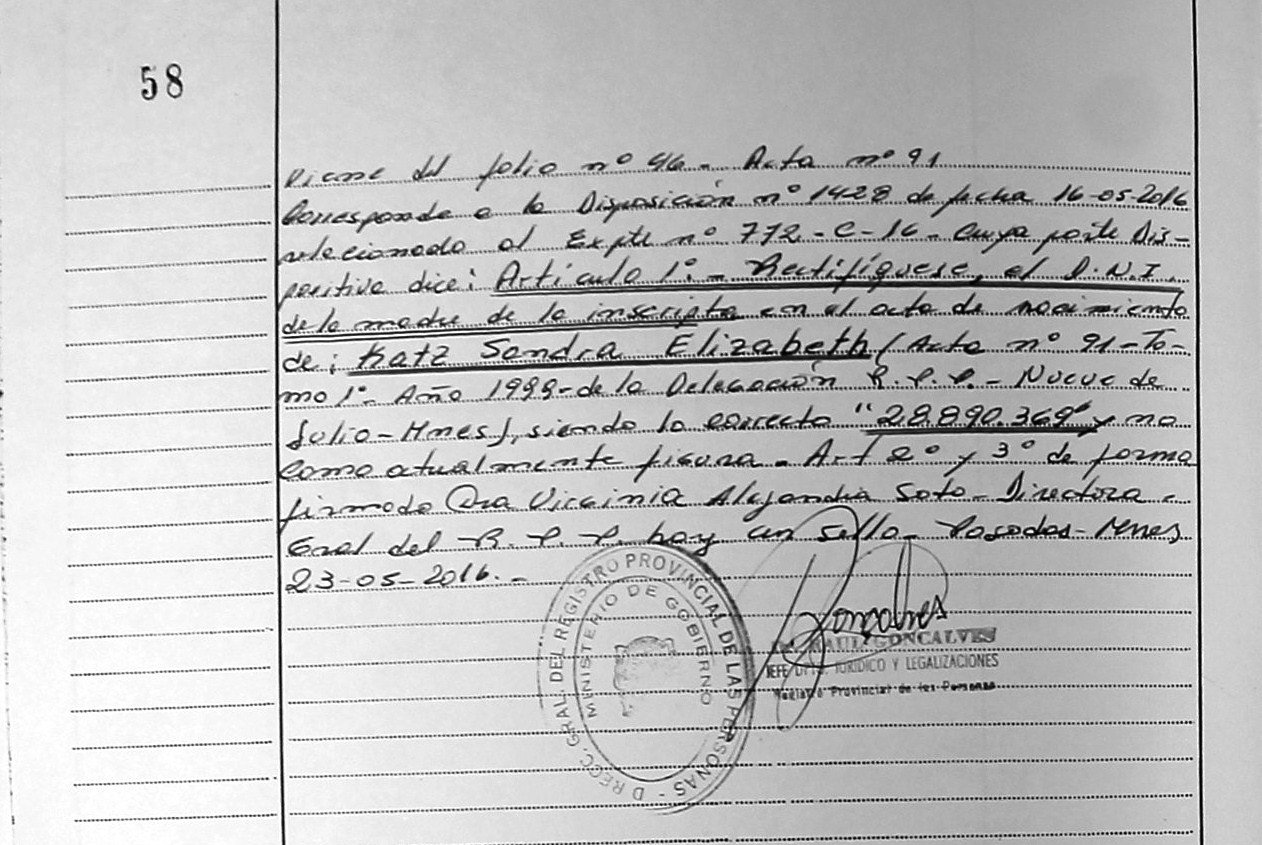 58
Viene del folio nº 46 - Acta nº 91
Corresponde a la Disposición nº 1428 de fecha 16-05-2016
relacionado al Expte nº 772-C-16- Cuya parte Dis-
positiva dice: Artículo 1º- Rectifíquese, el D.N.I.
de la madre de la inscripta en el acta de nacimiento
de: Katz Sandra Elizabeth (Acta nº 91-To-
mo 1º- Año 1999- de la Delegación R.P.P.- Nueve de
Julio-Mnes), siendo lo correcto "28.890.369" y no
como actualmente figura- Art 2º y 3º de forma
firmado Dra Virginia Alejandra Soto- Directora
Gral del R.P.P. hay un sello- Posadas-Mnes
23-05-2016.-
DIRECC. GRAL. DEL REGISTRO PROVINCIAL DE LAS PERSONAS -
MINISTERIO DE GOBIERNO
Gonçalves
RAUL GONCALVES
JEFE DPTO. JURIDICO Y LEGALIZACIONES
Registro Provincial de las Personas